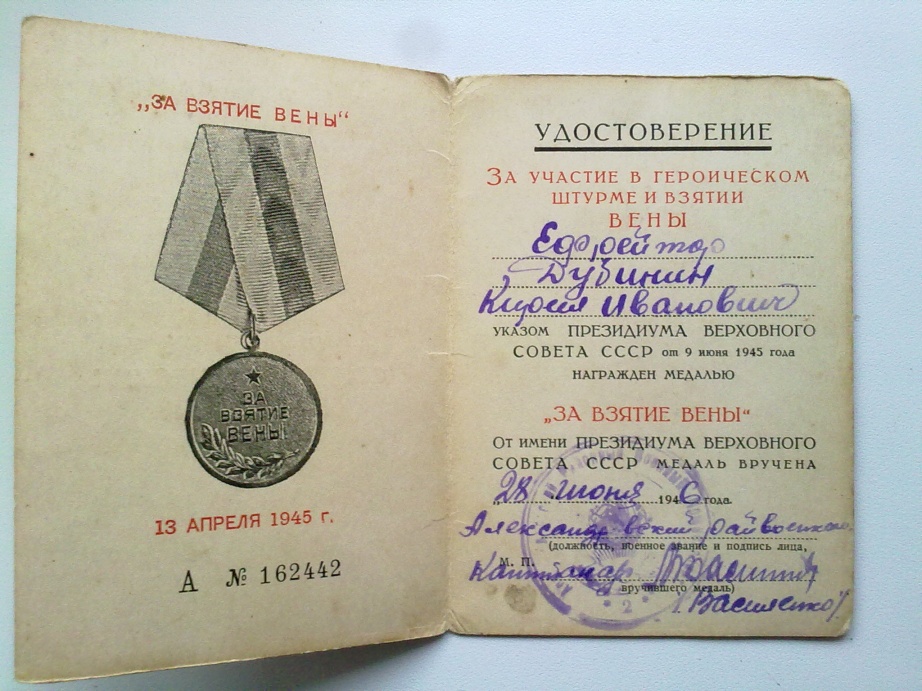 „ЗА ВЗЯТИЕ ВЕНЫ“
ЗА
ВЗЯТИЕ
ВЕНЫ
13 АПРЕЛЯ 1945 г.
А № 162442
УДОСТОВЕРЕНИЕ
ЗА УЧАСТИЕ В ГЕРОИЧЕСКОМ
ШТУРМЕ И ВЗЯТИИ
ВЕНЫ
Ефрейтор
Дубинин
Иванович
УКАЗОМ ПРЕЗИДИУМА ВЕРХОВНОГО
СОВЕТА СССР от 9 июня 1945 года
НАГРАЖДЕН МЕДАЛЬЮ
„ЗА ВЗЯТИЕ ВЕНЫ“
От имени ПРЕЗИДИУМА ВЕРХОВНОГО
СОВЕТА СССР МЕДАЛЬ ВРУЧЕНА
„28 июня 1946 года.
Александровский райвоенком
(должность, военное звание и подпись лица,
М. П.
вручившего медаль)
/Василенко/
2